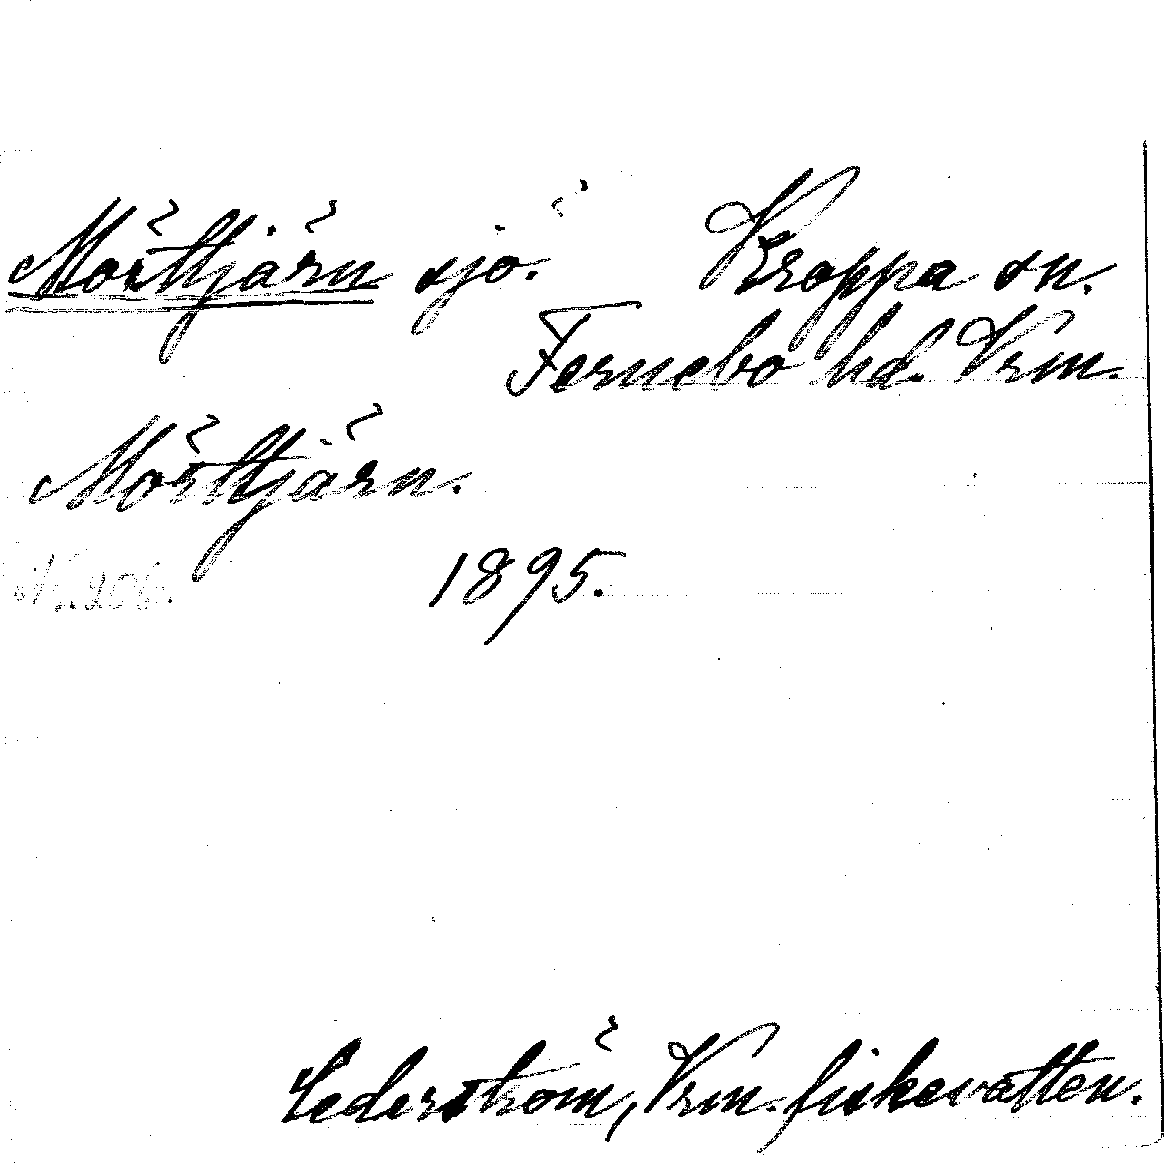 Mörttjärn sjö. Kroppa sn.
Fernebo hd. Vrm.
Mörttjärn.
N. 206. 1895.
Cederström, Vrm. fiskevatten.